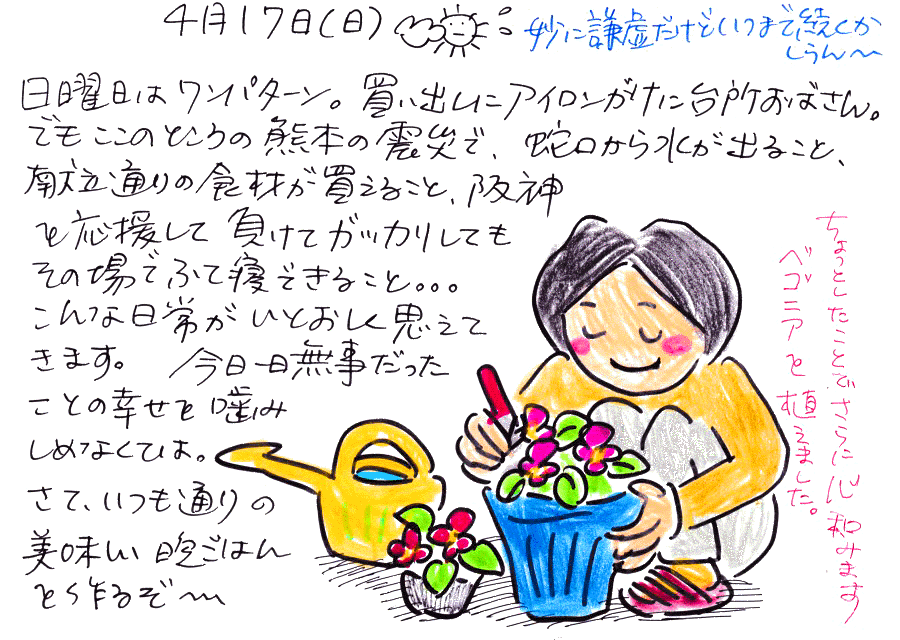 4月17日(日)
妙に謙虚だけどいつまで続くか
しらん〜
日曜日はワンパターン。買い出しにアイロンがけに台所おばさん。
でもここのところの熊本の震災で、蛇口から水が出ること、
献立通りの食材が買えること、阪神
を応援して負けてガッカリしても
その場でふて寝できること。。。
こんな日常がいとおしく思えて
きます。今日一日無事だった
ことの幸せを噛み
しめなくては。
さて、いつも通りの
美味しい晩ごはん
を作るぞ〜
ちょっとしたことでさらに心和みます
ベゴニアを植えました。